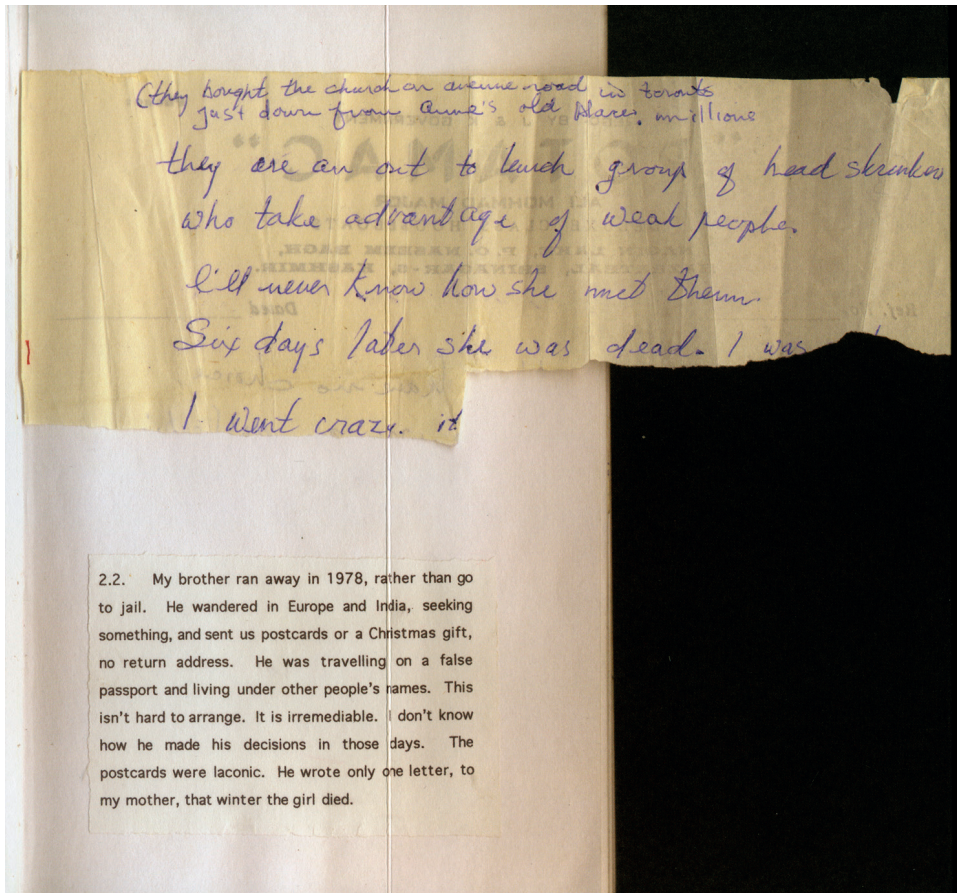 (they bought the church on avenue road in toronto
just down from anne's old place. millions
they are an out to lunch group of head shrinkers
who take advantage of weak people.
I'll never know how she met them.
Six days later she was dead. I was
I went crazy. it
2.2. My brother ran away in 1978, rather than go
to jail. He wandered in Europe and India, seeking
something, and sent us postcards or a Christmas gift,
no return address. He was travelling on a false
passport and living under other people's names. This
isn't hard to arrange. It is irremediable. I don't know
how he made his decisions in those days. The
postcards were laconic. He wrote only one letter, to
my mother, that winter the girl died.